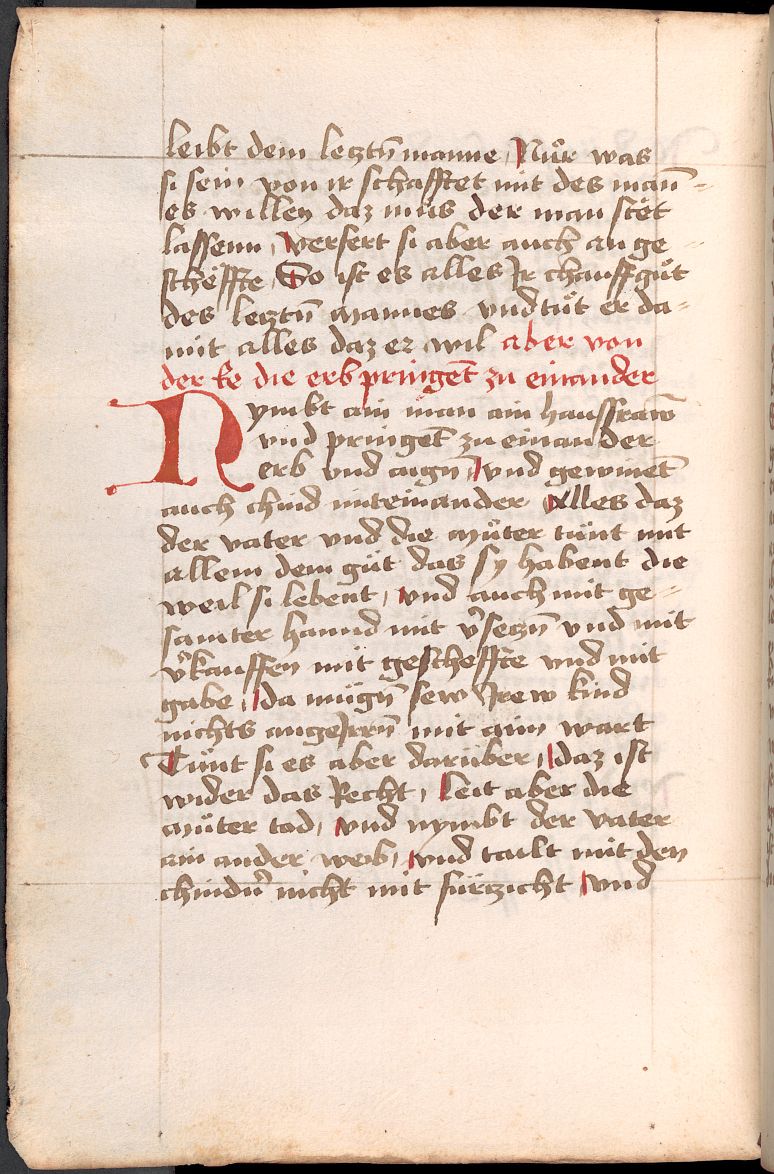 leibt dem lecztn̄ manne, Nuͤr was
si sein von ir schafftet mit des man̄ =
es willen daz mus der man stët
lassenn, verfert si aber auch an ge =
schëffte, So ist es alles Jr chauffguͤt
des lecztn̄ mannes vnd tuͤt er da=
mit alles daz er wil aber von
der Ee die erb pringet̄ zu einander
Nymbt ain man ain haussfraw̄
vnd pringet̄ zu einander
erb vnd aign̄, vnd gewinet̄
auch chind miteinander Alles daz
der vater vnd die muͤter tuͤnt mit
allem dem guͤt das sy habent die
weil si lebent, vnd auch mit ge =
samter hannd mit v̾seczn̄ vnd mit
v̾kauffen mit gescheffte vnd mit
gabe, da muͤgn̄ sew Jrew kind
nichts angeJrrn̄ mit aim wart
Tuͤnt si es aber daruͤber, daz ist
wider das Recht, leit aber die
muͤter tod, vnd nymbt der vater
ain ander weib, vnd tailt mit den
chindn̾ nicht mit fürczicht vnd